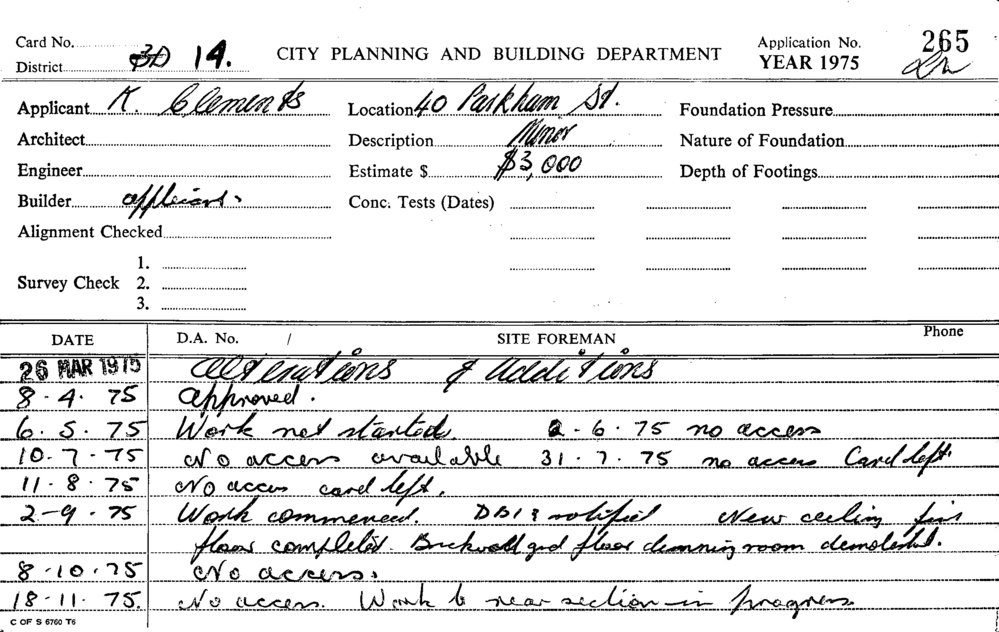 Card No. CITY PLANNING AND BUILDING DEPARTMENT Application No. 265
District 3D 14. YEAR 1975
Applicant K. Clements Location 40 Parkham St. Foundation Pressure
Architect Description Minor Nature of Foundation
Engineer Estimate $ $3,000 Depth of Footings
Builder applicant. Conc. Tests (Dates)
Alignment Checked
Survey Check 1.
2.
3.
DATE D.A. No. / SITE FOREMAN Phone
26 MAR 1975 Alterations & Additions
8-4-75 Approved.
6.5.75 Work not started. 2-6-75 no access
10-7-75 No access available 31-7-75 no access Card left.
11-8-75 No access card left.
2-9-75 Work commenced. notified New ceiling
floor completed. Brickwall grd floor room demolished.
8-10-75 No access.
18-11-75. No access. Work to rear section in progress.
C OF S 6760 T6